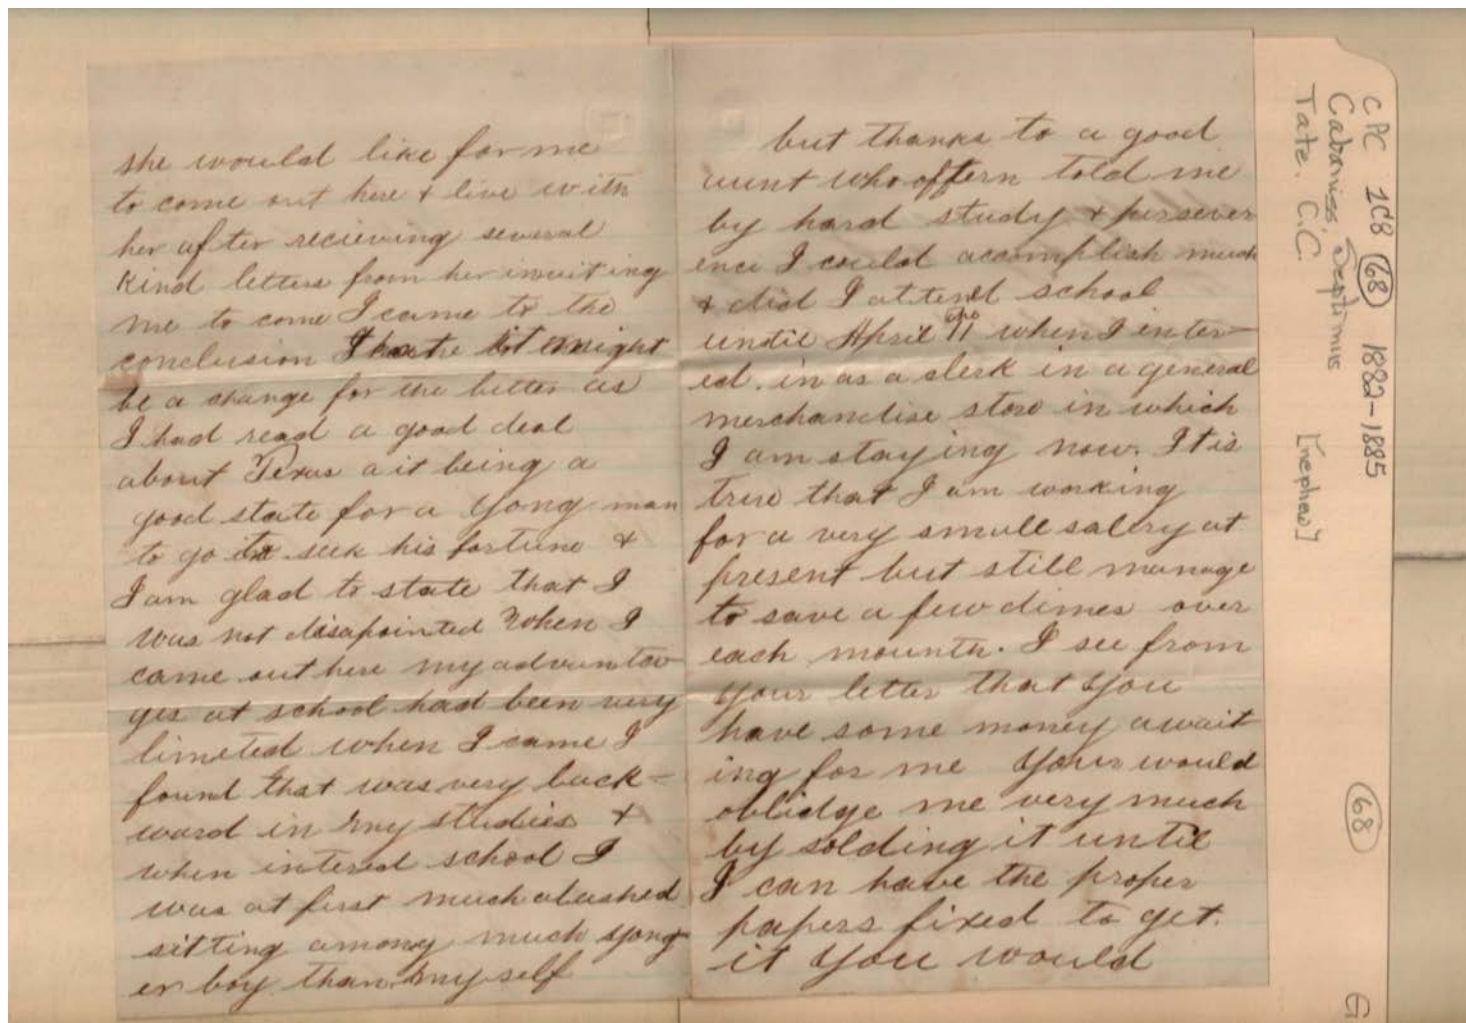 she would like for me
to come out here & live with
her after recieving several
kind letters from her inviting
me to come I came to the
conclusion that it might
be a change for the better as
I had read a good deal
about Texas a it being a
good state for a yong man
to go to seek his fortune &
I am glad to state that I
was not disapointed when I
came out here my advanta
ges at school had been very
limeted when I came I
found that was very back=
ward in my studies &
when intered school I
was at first much abashed
sitting among much yong
er boy than myself
but thanks to a good
aunt who oftern told me
by hard study & persever
ence I could acomplish much
& did I attend school
until April when I inter-
ed. in as a clerk in a general
merchandise store in which
I am staying now. It is
true that I am working
for a very small salery at
present but still manage
to save a few dimes over
each mounth. I see from
your letter that you
have some money await
ing for me your would
oblidge me very much
by solding it until
I can have the proper
papers fixed to get.
it you would
CPC 1C8 (68) 1882-1885
Cabaniss, Septimus
Tate. C.C. [nephew]
(68)